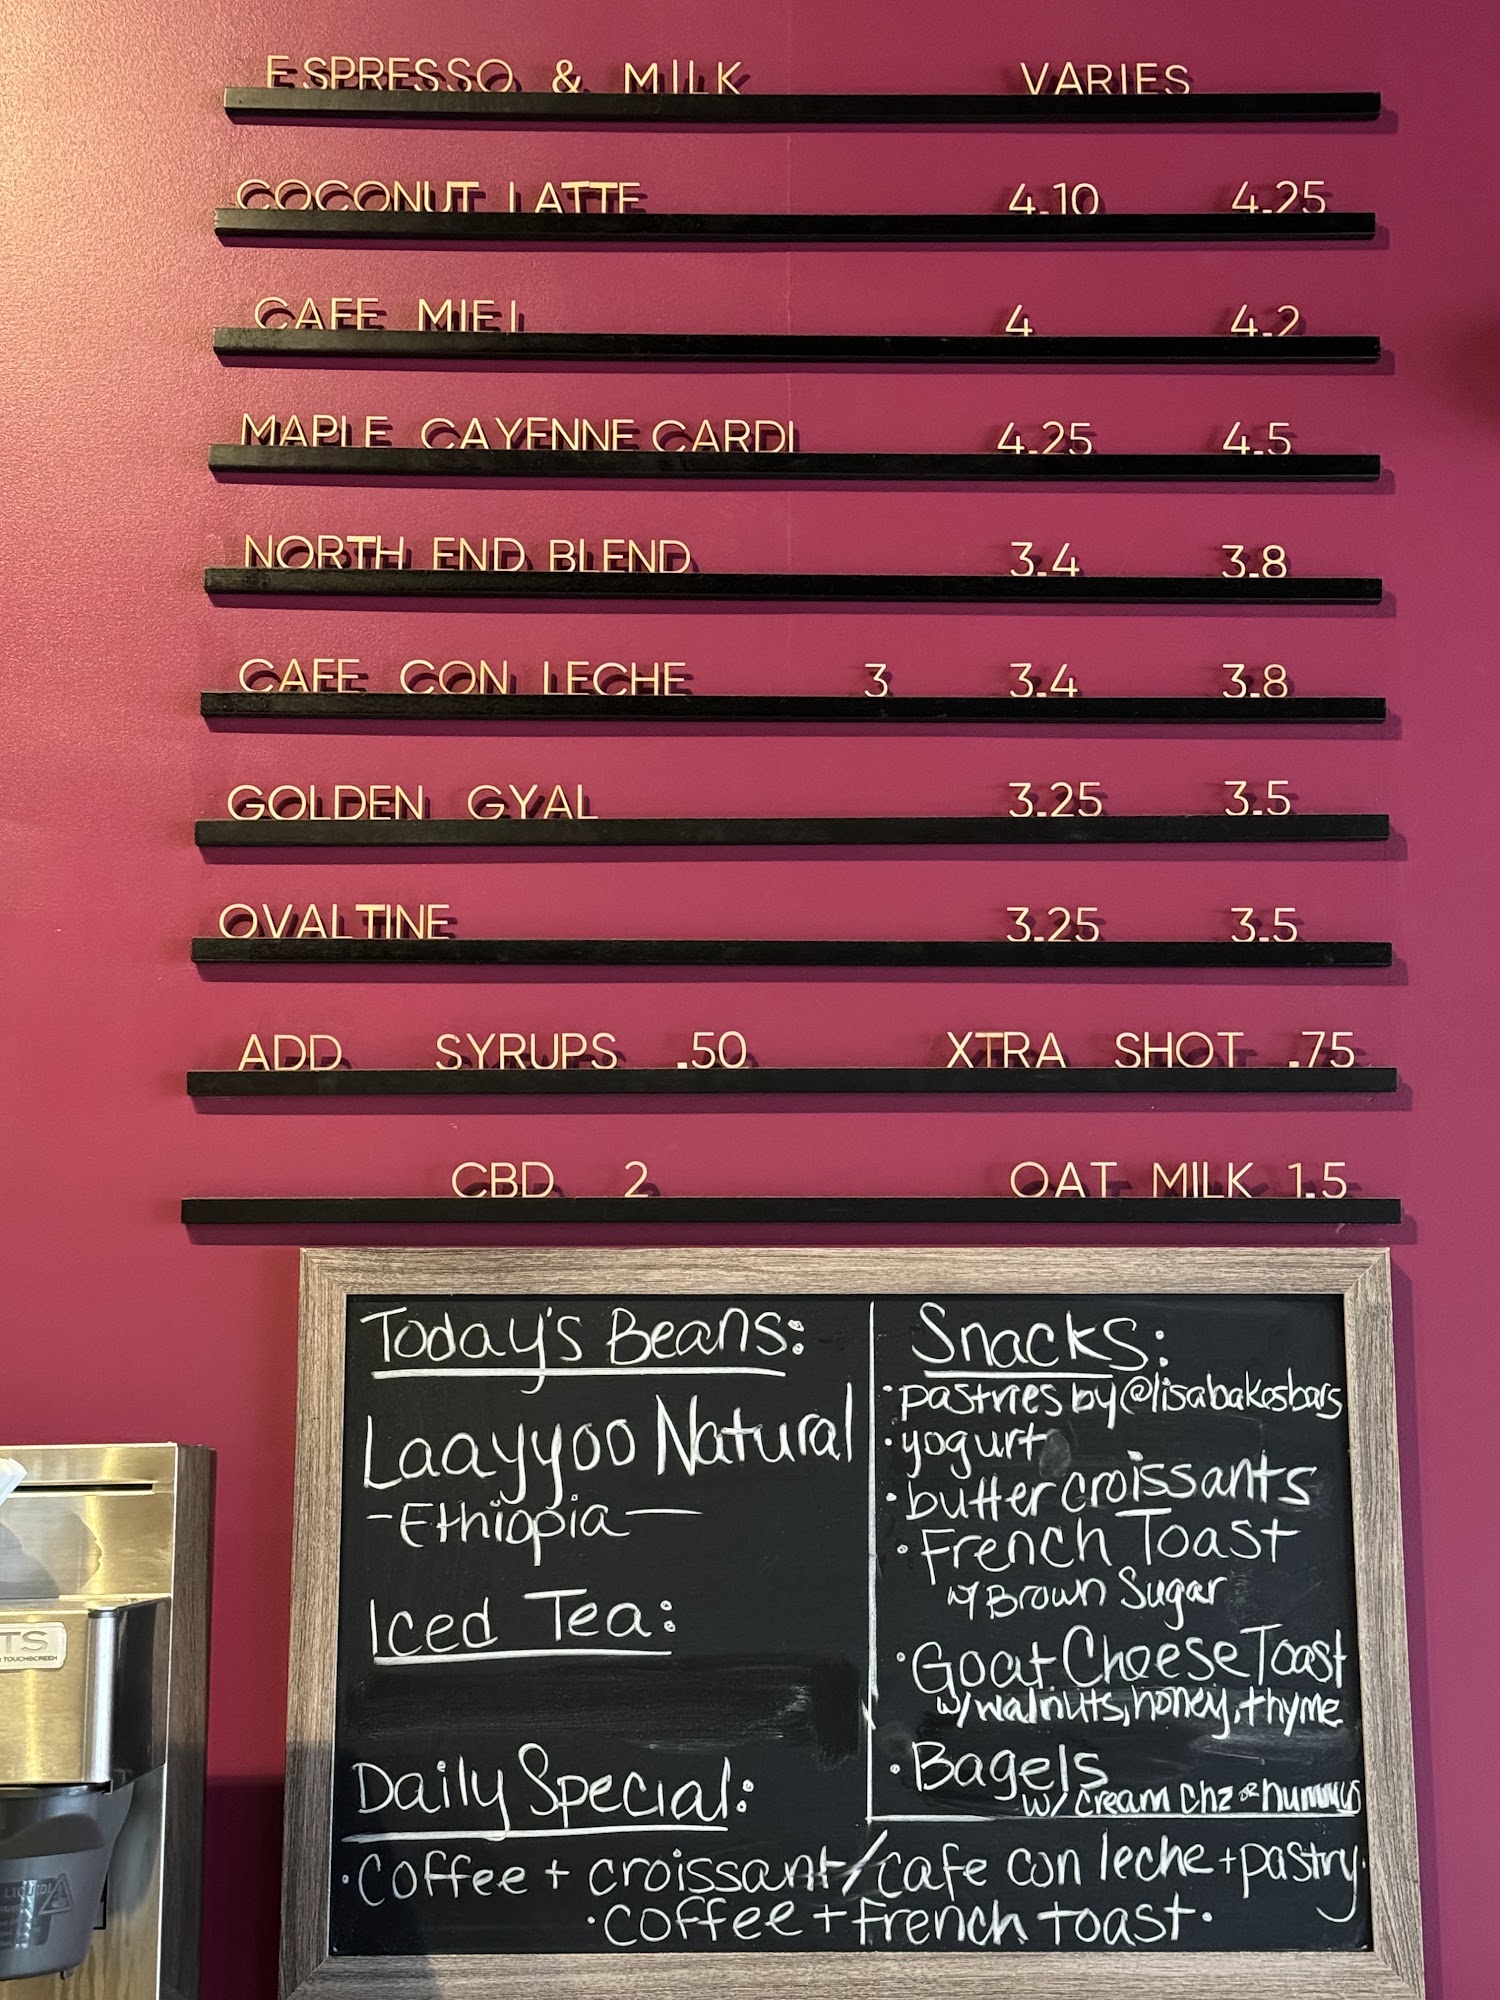 ESPRESSO & MILK VARIES
COCONUT LATTE 4.10 4.25
CAFE MIEL 4 4.2
MAPLE CAYENNE CARDI 4.25 4.5
NORTH END BLEND 3.4 3.8
CAFE CON LECHE 3 3.4 3.8
GOLDEN GYAL 3.25 3.5
OVALTINE 3.25 3.5
ADD SYRUPS .50 XTRA SHOT .75
CBD 2 OAT MILK 1.5
Today's Beans:
Laayyoo Natural
-Ethiopia-
Iced Tea:
Snacks:
• pastries by @lisabakesbars
• yogurt
• butter croissants
• French Toast
w/ Brown Sugar
• Goat Cheese Toast
w/ walnuts, honey, thyme
• Bagels
w/ cream chz or hummus
Daily Special:
• coffee + croissant/cafe con leche + pastry •
• coffee + french toast •
TS
TOUCHSCREEN
LIQUID